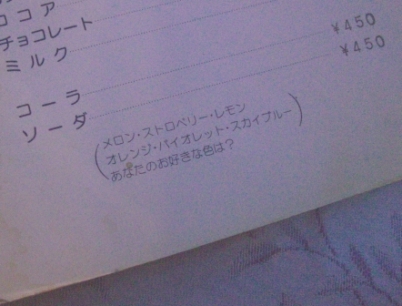 ココア
チョコレート
ミルク
コーラ ¥450
ソーダ ¥450
(メロン・ストロベリー・レモン
オレンジ・バイオレット・スカイブルー
あなたのお好きな色は?)